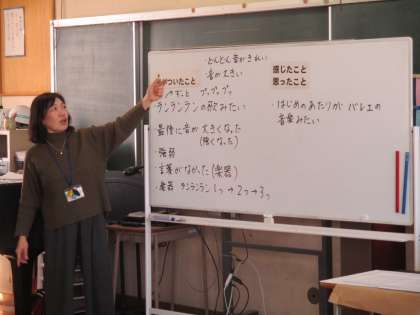 ・とんとん音がきれい
・音が大きい
気がついたこと
・ずっと プップップッ
ランランランの歌みたい
・最後に音が大きくなった
(強くなった)
・強弱
・言葉がなかった(楽器)
・楽器 ランランラン 1つ→2つ→3つ
感じたこと
思ったこと
・はじめのあたりが バレエの
音楽みたい